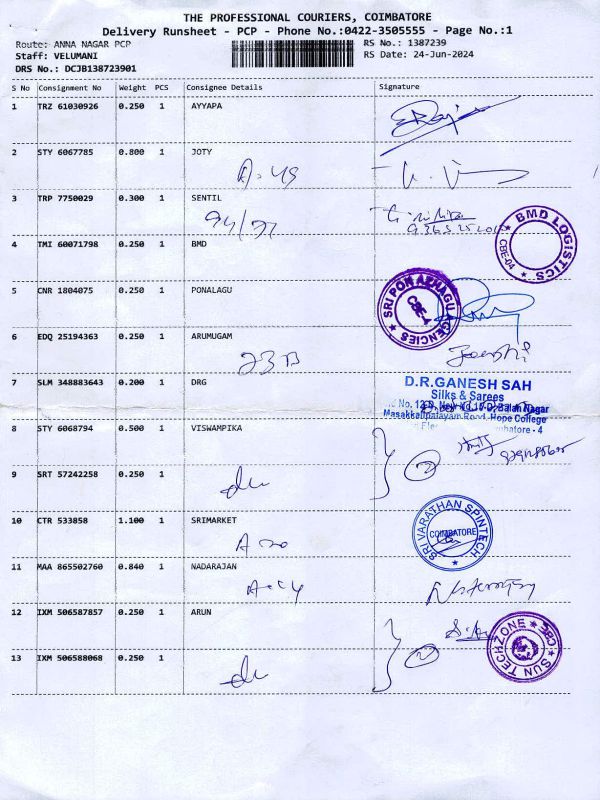 THE PROFESSIONAL COURIERS, COIMBATORE
Delivery Runsheet - PCP - Phone No.:0422-3505555 - Page No.:1
Route: ANNA NAGAR PCP RS No.: 1387239
Staff: VELUMANI RS Date: 24-Jun-2024
DRS No.: DCJB138723901
S No Consignment No Weight PCS Consignee Details Signature
1 TRZ 61030926 0.250 1 AYYAPA
2 STY 6067785 0.800 1 JOTY
A-49
3 TRP 7750029 0.300 1 SENTIL
94/77
4 TMI 60071798 0.250 1 BMD
BMD LOGISTICS CBE-04
5 CNR 1804075 0.250 1 PONALAGU
SRI PON AZHAGU AGENCIES CBE-4
6 EDQ 25194363 0.250 1 ARUMUGAM
23 B
7 SLM 348883643 0.200 1 DRG
D.R.GANESH SAH
Silks & Sarees
No. 12-D, New No.10-D, Balan Nagar
Masakkalipalayam Road, Hope College
8 STY 6068794 0.500 1 VISWAMPIKA
2
9 SRT 57242258 0.250 1
10 CTR 533858 1.100 1 SRIMARKET
SRI VARATHAN SPINTECH COIMBATORE
11 MAA 865502760 0.840 1 NADARAJAN
12 IXM 506587857 0.250 1 ARUN
SUN TECHZONE CBE
2
13 IXM 506588068 0.250 1